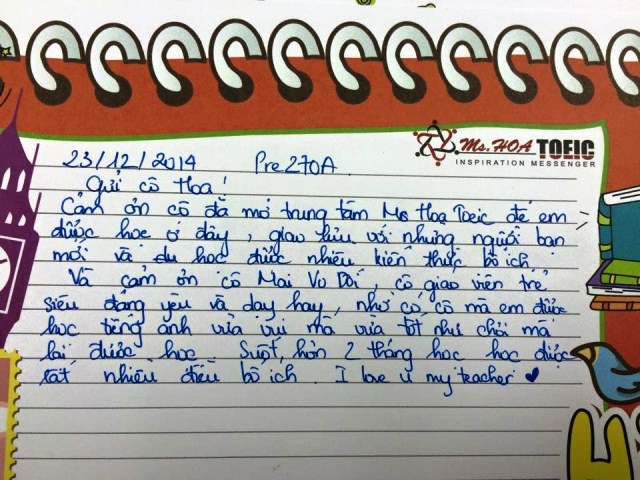 Ms. HOA TOEIC
INSPIRATION MESSENGER
23/12/2014 Pre270A
Gửi cô Hoa!
Cảm ơn cô đã mở trung tâm Ms Hoa Toeic để em
được học ở đây, giao lưu với những người bạn
mới và du học được nhiều kiến thức bổ ích.
Và cảm ơn cô Mai Vu Bối, cô giáo viên trẻ
siêu đáng yêu và dạy hay, nhờ có cô mà em được
học tiếng anh vừa vui mà vừa tốt như chơi mà
lại được học. Suốt hơn 2 tháng học học được
rất nhiều điều bổ ích. I love u my teacher ♥